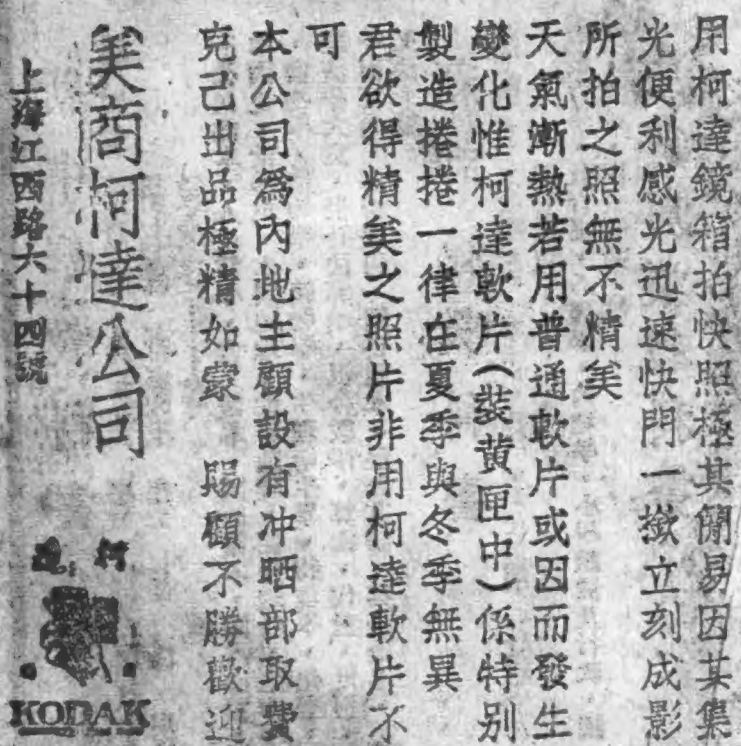 用柯達鏡箱拍快照極其簡易因其集
光便利感光迅速快門一撳立刻成影
所拍之照無不精美
天氣漸熱若用普通軟片或因而發生
變化惟柯達軟片(裝黃匣中)係特别
製造捲捲一律在夏季與冬季無異
君欲得精美之照片非用柯達軟片不
可
本公司爲內地主顧設有冲晒部取費
克己出品極精如蒙 賜顧不勝歡迎
美商柯達公司
上海江西路六十四號
柯達
KODAK